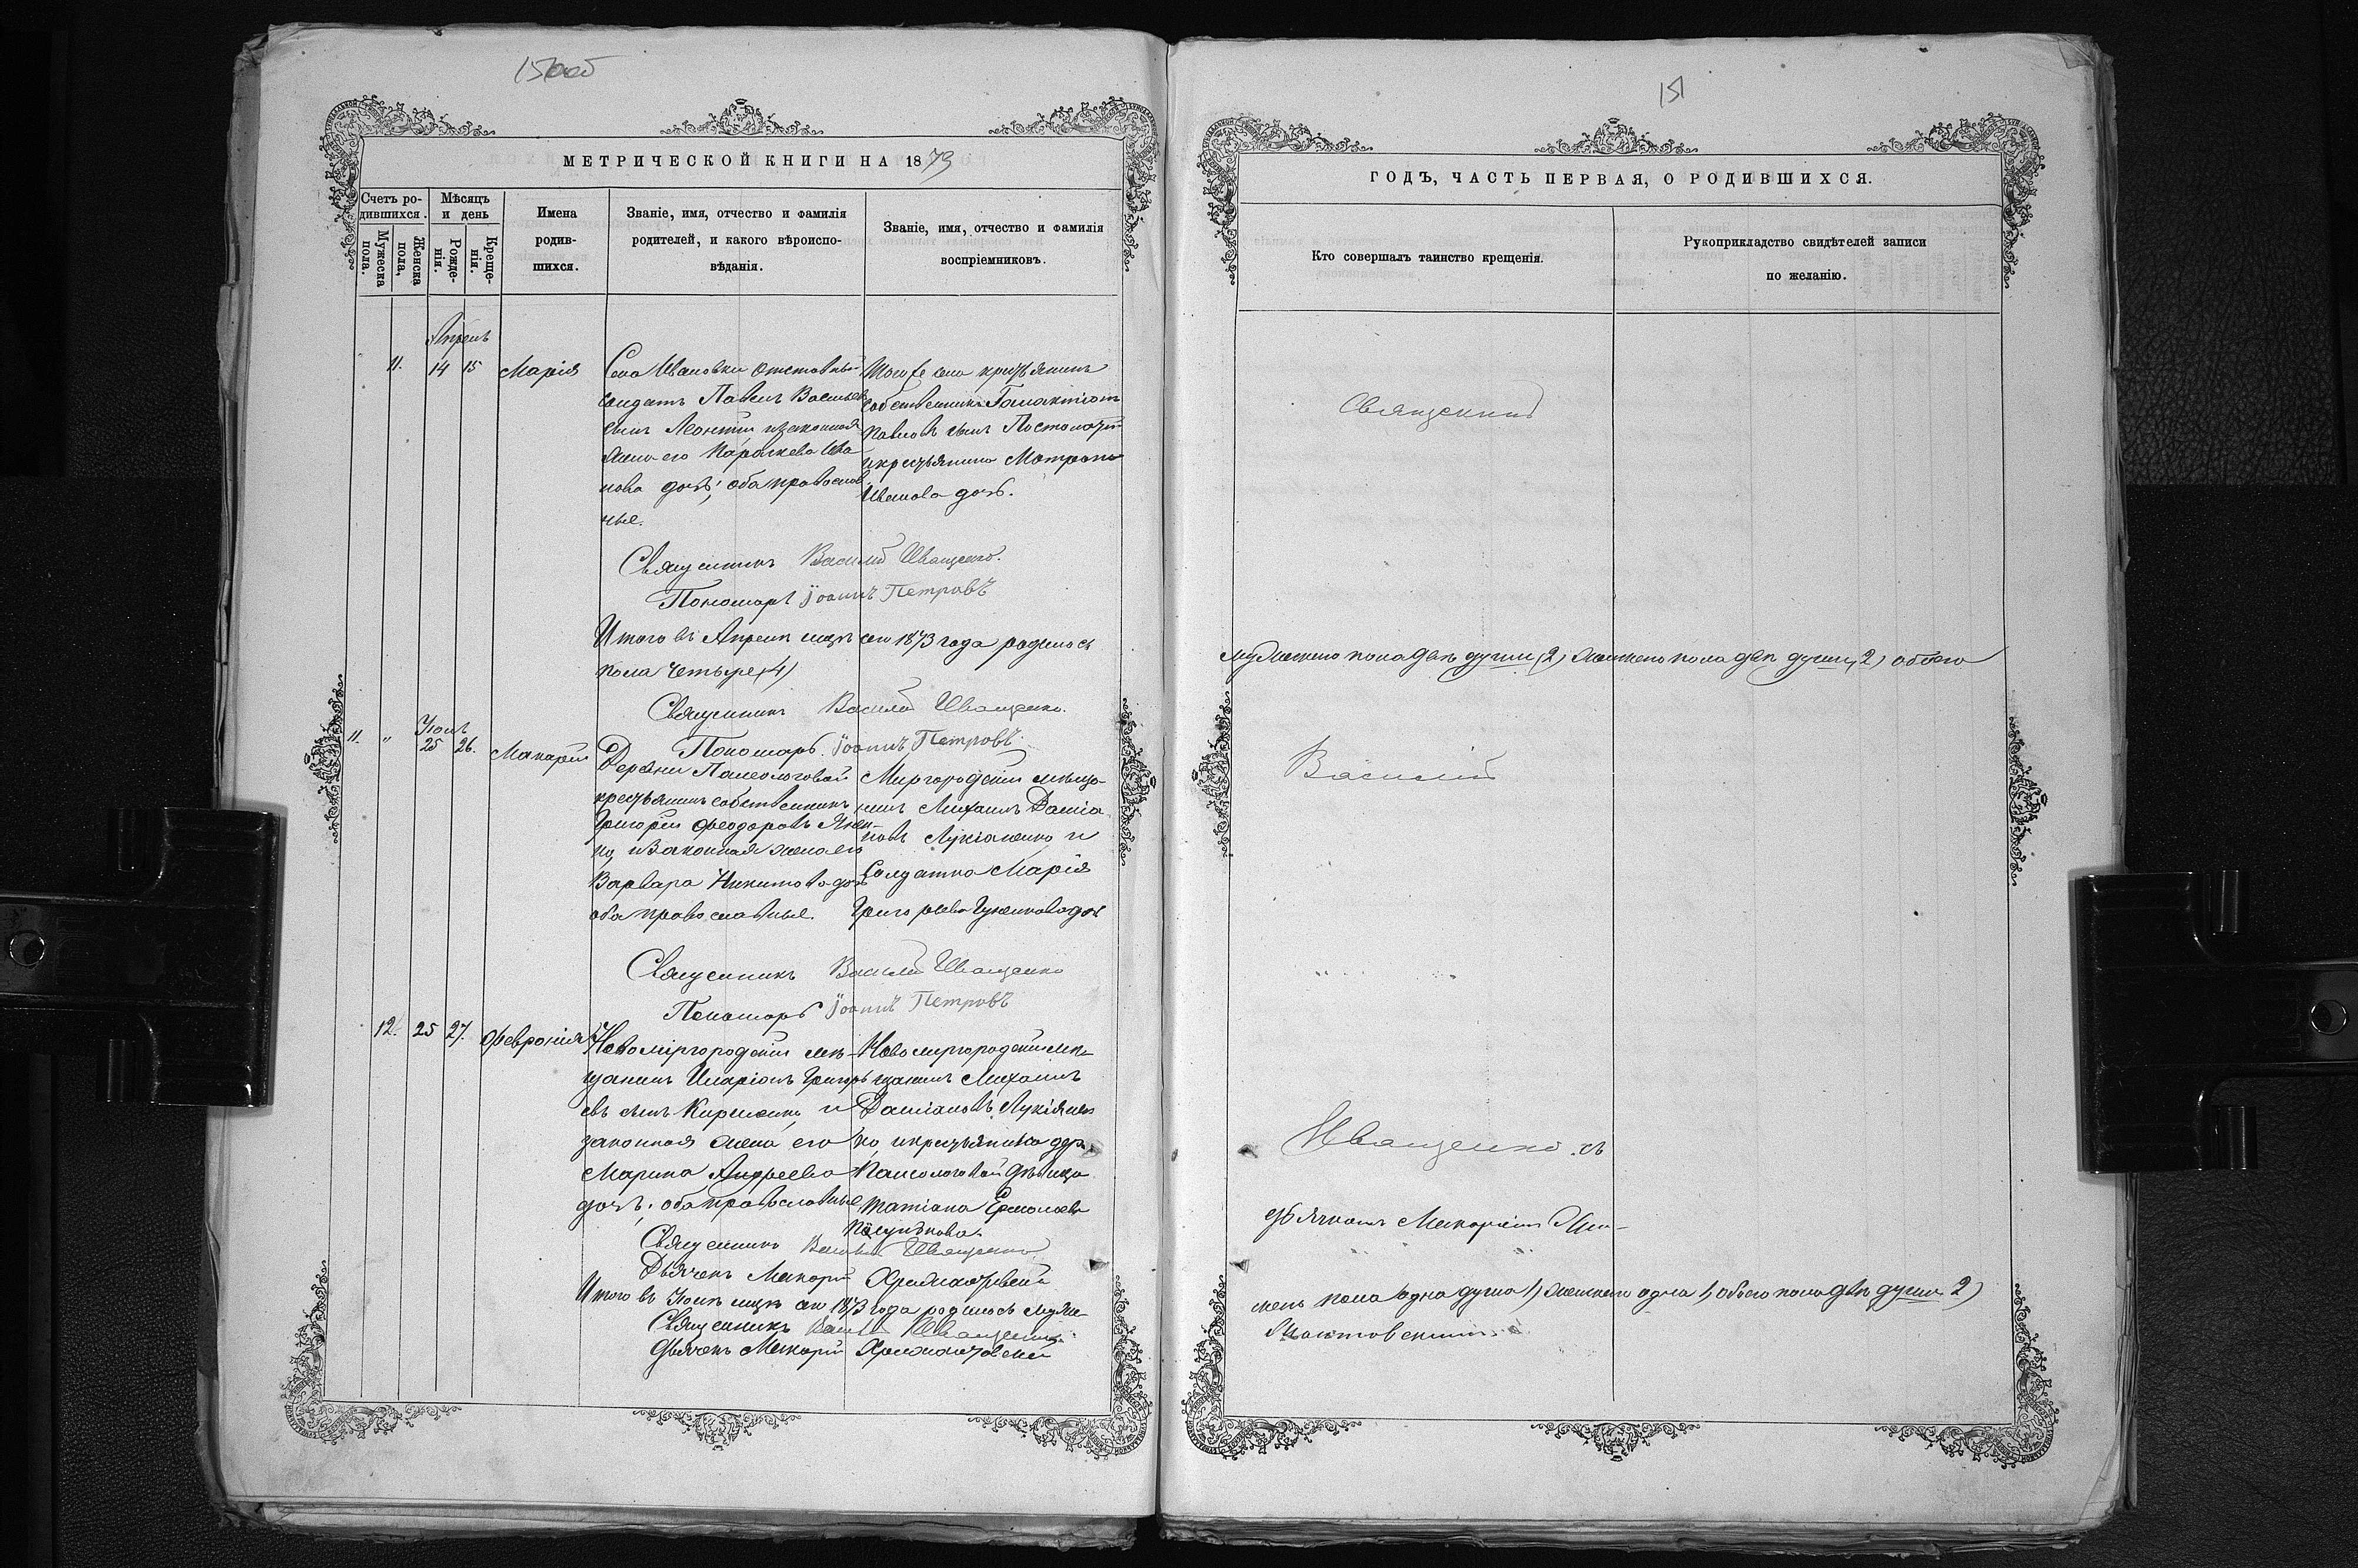 150об
МЕТРИЧЕСКОЙ КНИГИ НА 1873
Счетъ ро-
дившихся.
Мужеска
пола.
Женска
пола,
Мѣсяцъ
и день
Рожде-
нія.
Креще-
нія.
Имена
родив-
шихся.
Званіе, имя, отчество и фамилія
родителей, и какого вѣроиспо-
вѣданія.
Званіе, имя, отчество и фамилія
воспріемниковъ.
Апрель
11. 14 15 Марія
Села Ивановки отставный
солдатъ Павелъ Васильев
сынъ Леонтій и законная
жена его Параскева Ива
нова дочь; оба православ
ные.
Тогоже села крестьянинъ
собственникъ Галактіонъ
Павловъ сынъ
и крестьянина Матрона
Иванова дочь.
Священникъ Василій Иващенко.
Пономарь Іоаннъ Петровъ
Итого въ Апрелѣ мцѣ сего 1873 года родилось
пола четыре (4)
Священникъ Василій Иващенко.
Пономарь Іоаннъ Петровъ.
11. " 25 26. Макарій
Деревни Палеологовой
крестьянинъ собственникъ
Григорій Феодоровъ
ко, и законная жена его
Варвара Никитова дочь
оба православные.
Миргородскій мѣща-
нинъ Михаилъ Даміа
новъ Лукіаненко и
Солдатка Марія
Григорьева дочь
Священникъ Василій Иващенко
Пономарь Іоаннъ Петровъ
12. 25 27. Февронія
Новомиргородскій мѣ-
щанинъ Иларіонъ Григорь
евъ сынъ и
законная жена его
Марина Андреева
дочь; оба православные
Новомиргородскій мѣ-
щанинъ Михаилъ
Даміановъ Лукіянен
ко, и крестьянка дер.
Палеологовой дѣвица
Татіана Ермолаева
Священникъ Василій Иващенко
Дьячекъ Макарій
Итого въ мцѣ сего 1873 года родилось муже
Священникъ Василій Иващенко
Дьячекъ Макарій
151
ГОДЪ, ЧАСТЬ ПЕРВАЯ, О РОДИВШИХСЯ.
Кто совершалъ таинство крещенія.
Рукоприкладство свидѣтелей записи
по желанію.
Священникъ
мужескаго пола двѣ души (2) женскаго пола двѣ души (2) обоего
Василій
Иващенко съ
дьячкомъ Макаріемъ
скаго пола одна душа 1) женскаго одна 1) обоего пола двѣ души 2)